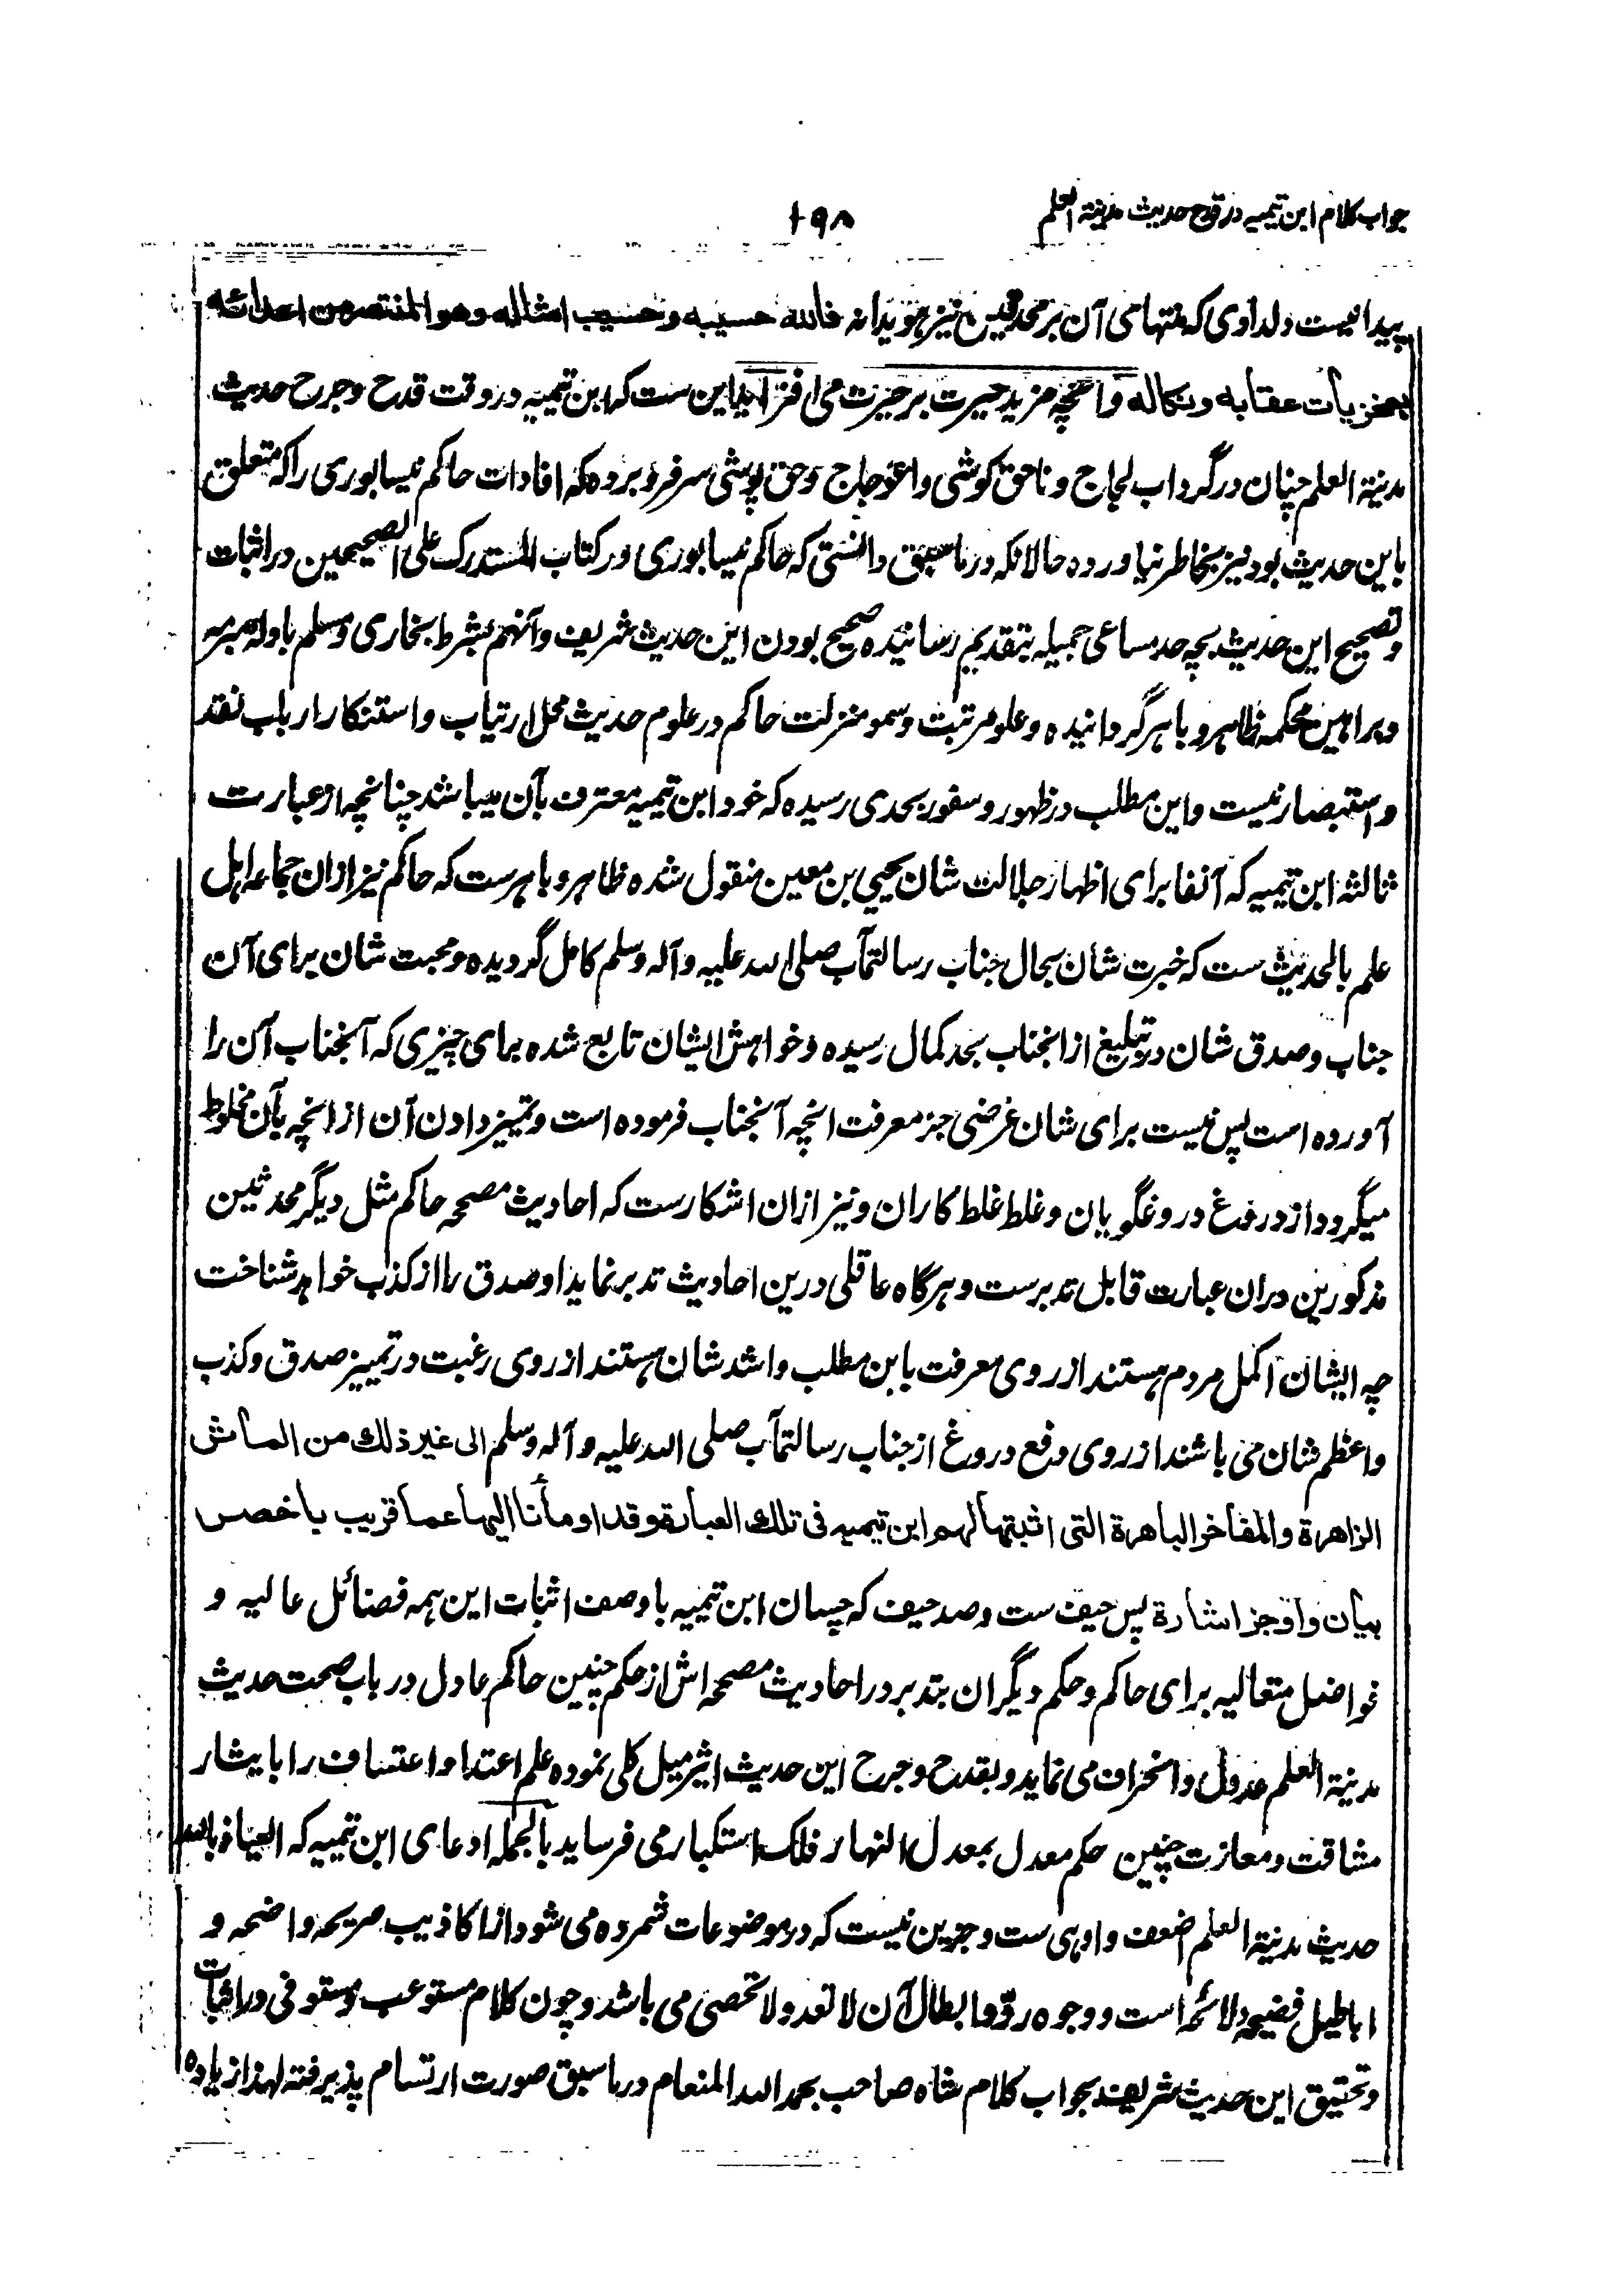 جواب کلام ابن تیمیه در قدح حدیث مدینة العلم
۱۹۸
پیدا نیست ولداوی که منتهای آن بر محققین نیز هویدا نه فالله حسیبه وحسیب امثاله وهو المنتقم من اعدائه
بمخزیات عقابه ونکاله وانچه مزید حیرت بر حیرت می افزاید این ست که ابن تیمیه در وقت قدح وجرح حدیث
مدینة العلم چنان در گرداب لجاج وناحق کوشی واعوجاج وحق پوشی سر فرو برده که افادات حاکم نیسابوری را که متعلق
باین حدیث بود نیز بخاطر نیاورده حالانکه در ما سبق دانستی که حاکم نیسابوری در کتاب المستدرک علی الصحیحین در اثبات
وتصحیح این حدیث بچه حد مساعی جمیله بتقدیم رسانیده صحیح بودن این حدیث شریف وآنهم بشرط بخاری ومسلم بادله مبرمه
وبراهین محکمه ظاهر وباهر گردانیده وعلو مرتبت وسمو منزلت حاکم در علوم حدیث محل ارتیاب واستنکار ارباب نقد
واستبصار نیست واین مطلب در ظهور وسفور بحدی رسیده که خود ابن تیمیه معترف بآن میباشد چنانچه از عبارت
ثالثه ابن تیمیه که آنفا برای اظهار جلالت شان یحیی بن معین منقول شده ظاهر وباهرست که حاکم نیز ازان جماعه اهل
علم بالحدیث ست که خبرت شان بحال جناب رسالتمآب صلی الله علیه وآله وسلم کامل گردیده ومحبت شان برای آن
جناب وصدق شان در تبلیغ از انجناب بحد کمال رسیده وخواهش ایشان تابع شده برای چیزی که آنجناب آن را
آورده است پس نیست برای شان غرضی جز معرفت انچه آنجناب فرموده است وتمییز دادن آن از انچه بآن مخلوط
میگردد از دروغ دروغگویان وغلط غلط کاران ونیز ازان اشکارست که احادیث مصححه حاکم مثل دیگر محدثین
مذکورین دران عبارت قابل تدبرست وهرگاه عاقلی درین احادیث تدبر نماید او صدق را از کذب خواهد شناخت
چه ایشان اکمل مردم هستند از روی معرفت باین مطلب واشد شان هستند از روی رغبت در تمییز صدق وکذب
واعظم شان می باشند از روی دفع دروغ از جناب رسالتمآب صلی الله علیه وآله وسلم الی غیر ذلک من المآثر
الزاهرة والمفاخر الباهرة التی اثبتها لهم ابن تیمیه فی تلک العبارة وقد اومأنا الیها عما قریب باخصر
بیان واوجز اشارة پس حیف ست وصد حیف که چسان ابن تیمیه با وصف اثبات این همه فضائل عالیه و
فواضل متعالیه برای حاکم وحکم دیگران بتدبر در احادیث مصححه اش از حکم چنین حاکم عادل در باب صحت حدیث
مدینة العلم عدول وانحراف می نماید وبقدح وجرح این حدیث اثیر میل کلی نموده علم اعتدا واعتساف را بایثار
مشاقت ومعازت چنین حکم معدل بمعدل النهار فلک استکبار می فرساید بالجمله ادعای ابن تیمیه که العیاذ بالله
حدیث مدینة العلم اضعف واوهی ست وجزین نیست که در موضوعات شمرده می شود از اکاذیب صریحه واضحه و
اباطیل فضیحه لائحه است ووجوه رد وابطال آن لا تعد ولا تحصی می باشد وچون کلام مستوعب ومستوفی در اثبات
وتحقیق این حدیث شریف بجواب کلام شاه صاحب بحمد الله المنعام در ما سبق صورت ارتسام پذیرفته لهذا زیاده